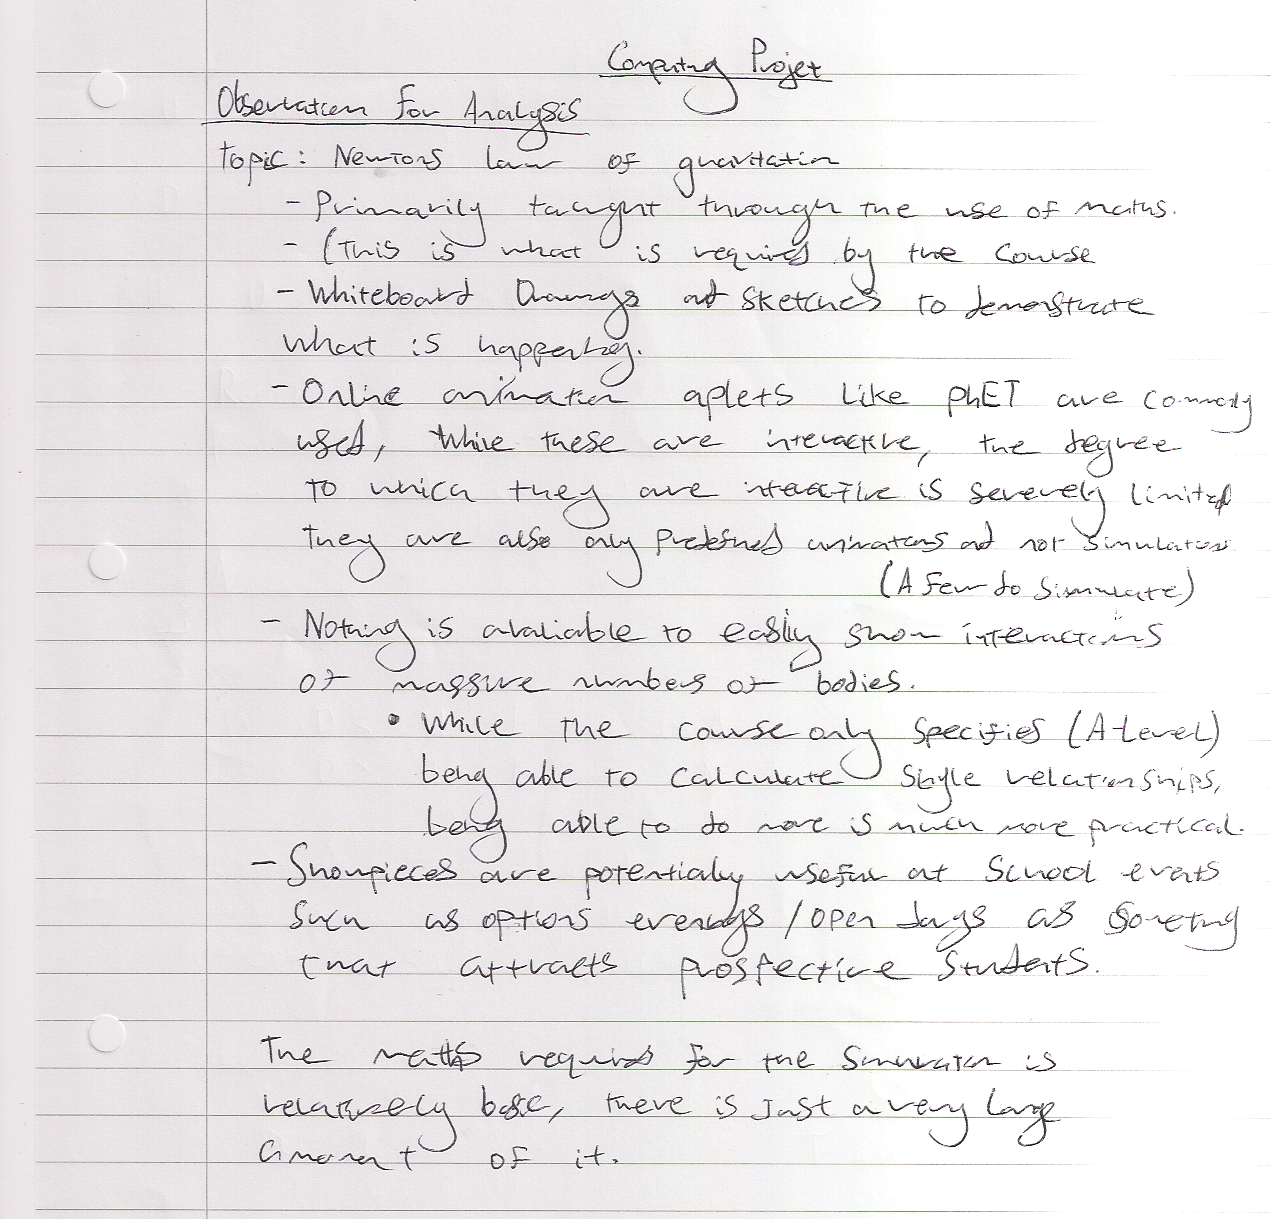 Computing Projet
Observation For Analysis
Topic: Newtons law of gravitation
- Primarily taught through the use of maths.
- (This is what is required by the course
- Whiteboard Drawings and sketches to demonstrate
what is happening.
- Online animation aplets like PhET are commonly
used, While these are interactive, the degree
to which they are interactive is severely limited
They are also only predefined animations and not simulations
(A few do simmulate)
- Nothing is avaliable to easily show interactions
of massive numbers of bodies.
• While the course only specifies (A-Level)
being able to calculate single relationships,
being able to do more is much more practical.
- Showpieces are potentially useful at School events
such as options evenings / open days as something
that attracts prospective students.
The maths required for the simulation is
relatively basic, there is just a very large
amount of it.